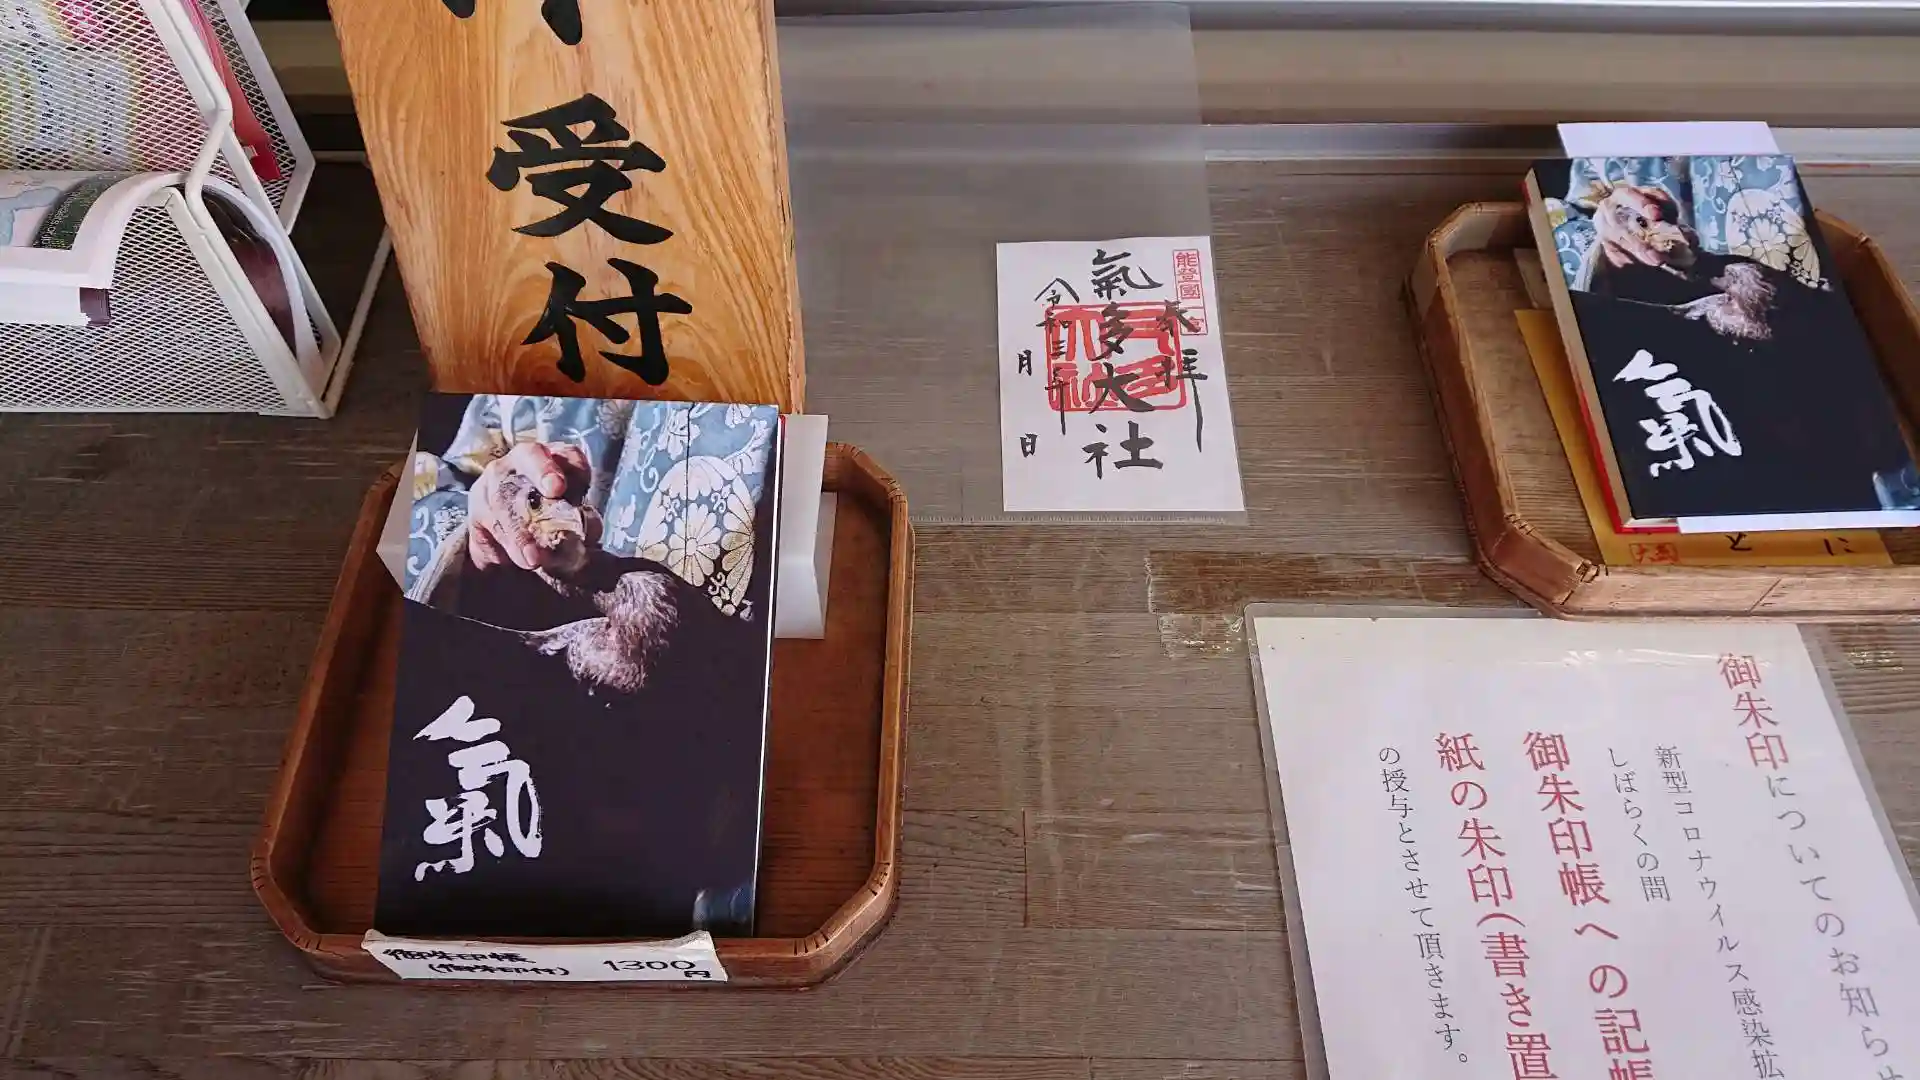 受付
氣
御朱印帳
(御朱印付) 1300円
能登國
奉拝
氣多大社
令和三年
月
日
氣
とに
御朱印についてのお知らせ
新型コロナウイルス感染拡
しばらくの間
御朱印帳への記帳
紙の朱印(書き置
の授与とさせて頂きます。